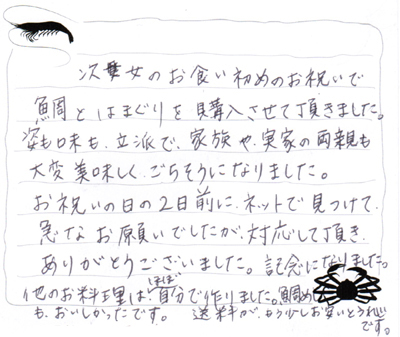 次女のお食い初めのお祝いで
鯛とはまぐりを購入させて頂きました。
姿も味も、立派で、家族や、実家の両親も
大変美味しく、ごちそうになりました。
お祝いの日の2日前に、ネットで見つけて、
急なお願いでしたが、対応して頂き、
ありがとうございました。記念になりました。
他のお料理は、ほぼ自分で作りました。鯛め
も、おいしかったです。 送料が、もう少しお安いとうれしい
です。